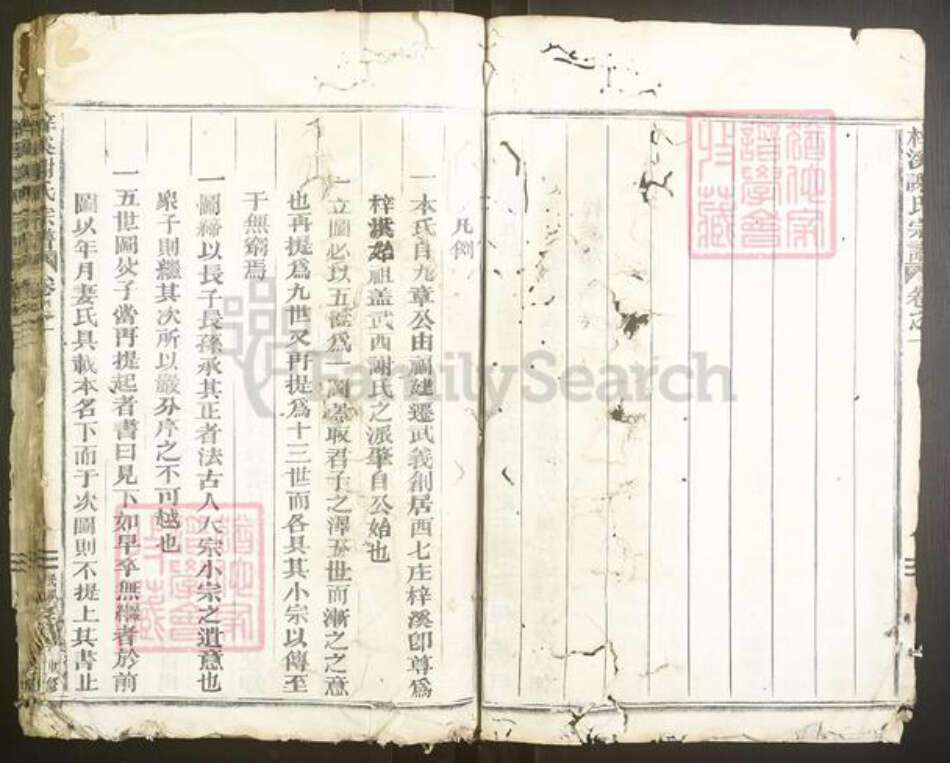 梓溪謝氏宗譜 卷之一
猶他家譜學會收藏
凡例
一本氏自九章公由福建遷武義創居西七庄梓溪卽尊爲
梓溪始祖盖武西謝氏之派肇自公始也
一立圖必以五世爲一圖盖取君子之澤五世而漸之之意
也再提爲九世又再提爲十三世而各具其小宗以傳至
于無窮焉
一圖締以長子長孫承其正者法古人大宗小宗之遺意也
衆子則繼其次所以嚴分序之不可越也
一五世圖父子當再提起者書曰見下如早卒無繼者於前
圖以年月妻氏具載本名下而于次圖則不提上其書止
梓溪謝氏宗譜 卷之一
猶他家譜學會收藏
FamilySearch